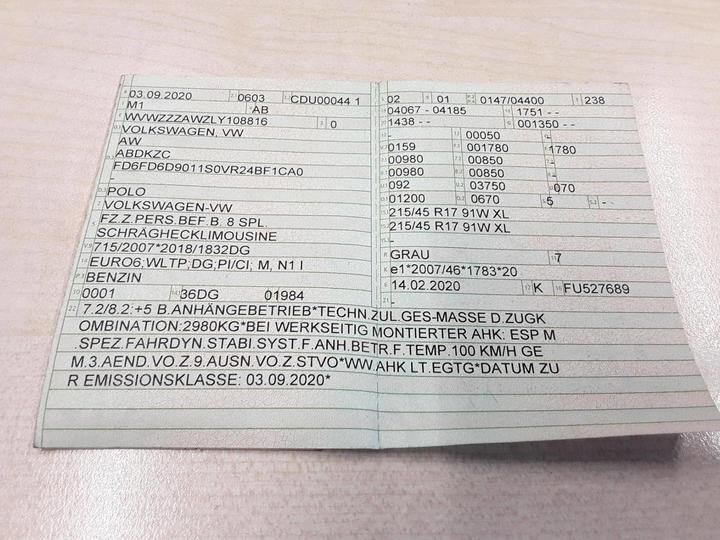 03.09.2020 0603 CDU00044 1
M1 AB
WVWZZZAWZLY108816 0
VOLKSWAGEN, VW
AW
ABDKZC
FD6FD6D9011S0VR24BF1CA0
-
POLO
VOLKSWAGEN-VW
FZ.Z.PERS.BEF.B. 8 SPL.
SCHRÄGHECKLIMOUSINE
715/2007*2018/1832DG
EURO6;WLTP;DG;PI/CI; M, N1 I
BENZIN
0001 36DG 01984
02 01 0147/04400 238
04067 - 04185 1751 - -
1438 - - 001350 - -
- 00050 -
0159 001780 1780
00980 00850 -
00980 00850 -
092 03750 070
01200 0670 5 -
215/45 R17 91W XL
215/45 R17 91W XL
-
GRAU 7
e1*2007/46*1783*20
14.02.2020 K FU527689
7.2/8.2:+5 B.ANHÄNGEBETRIEB*TECHN.ZUL.GES-MASSE D.ZUGK
OMBINATION:2980KG*BEI WERKSEITIG MONTIERTER AHK: ESP M
.SPEZ.FAHRDYN.STABI.SYST.F.ANH.BETR.F.TEMP.100 KM/H GE
M.3.AEND.VO.Z.9.AUSN.VO.Z.STVO*WW.AHK LT.EGTG*DATUM ZU
R EMISSIONSKLASSE: 03.09.2020*